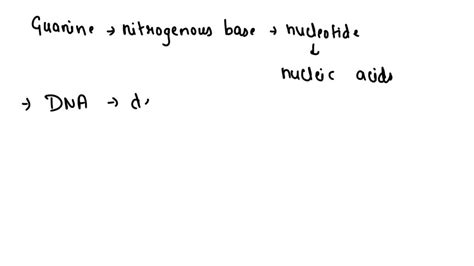 Guanine → nitrogenous base → nucleotide
↓
nucleic acids
→ DNA → d